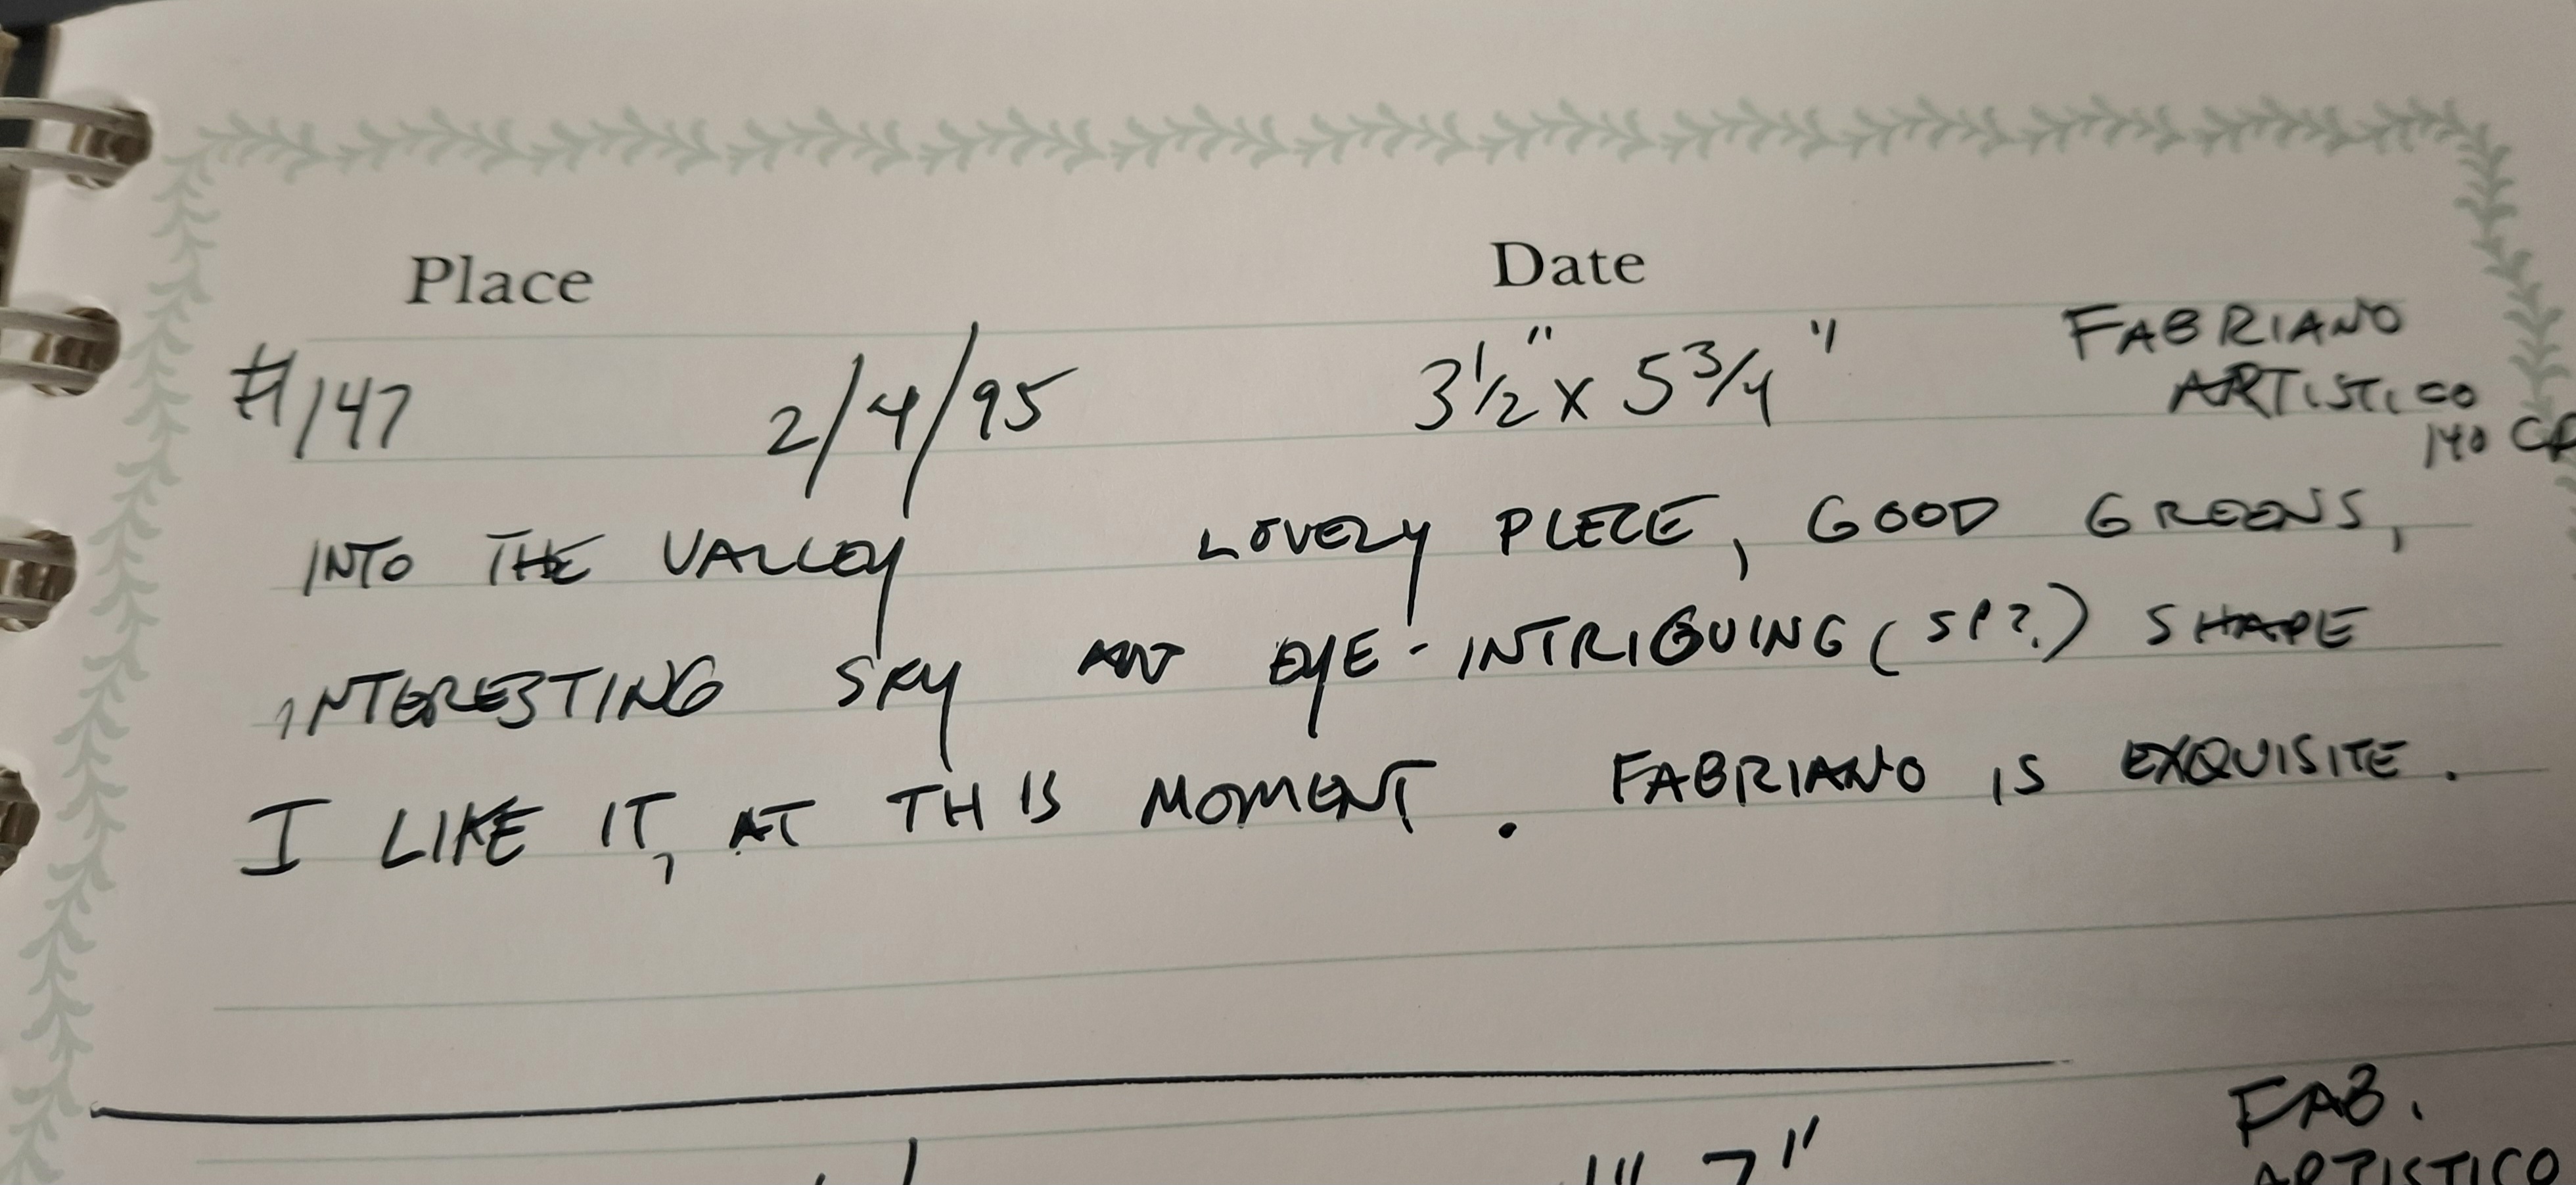 Place Date
#147 2/4/95 3 1/2" x 5 3/4" FABRIANO
ARTISTICO
140 CP
INTO THE VALLEY LOVELY PIECE, GOOD GREENS,
INTERESTING SKY AND EYE-INTRIGUING (SP?.) SHAPE
I LIKE IT, AT THIS MOMENT. FABRIANO IS EXQUISITE.
FAB.
7"
ARTISTICO